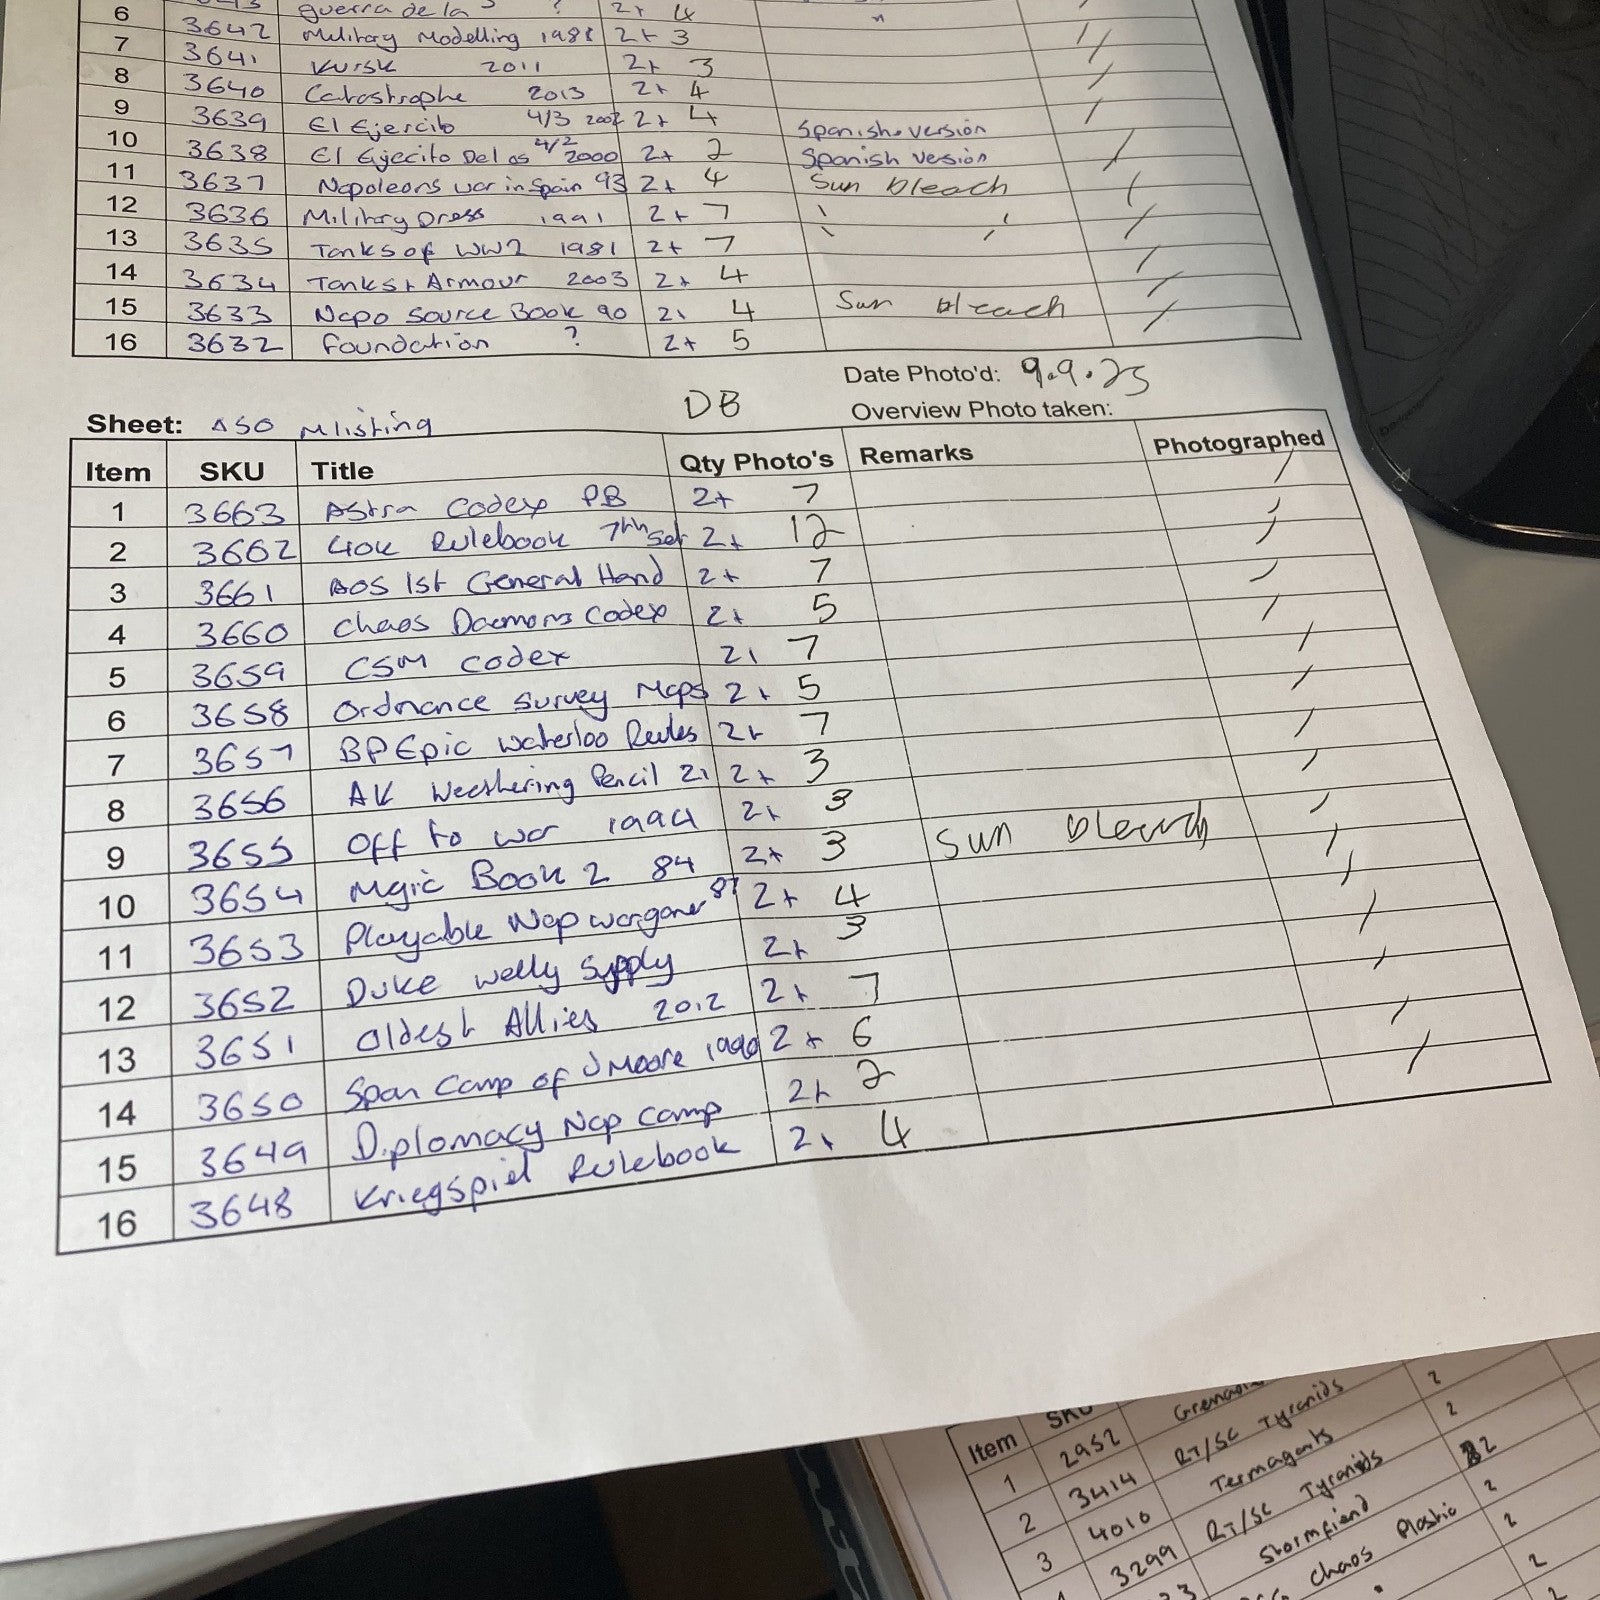 6 guerra de la ? 2+ 4
7 3642 Military Modelling 1988 2+ 3
8 3641 Kursk 2011 2+ 3
9 3640 Catastrophe 2013 2+ 4
10 3639 El Ejercito 4/3 2002 2+ 4 Spanish version
11 3638 El Ejecito Del os 4/2 2000 2+ 2 Spanish version
12 3637 Napoleons war in Spain 93 2+ 4 Sun bleach
13 3636 Military Dress 1991 2+ 7
14 3635 Tanks of WW2 1981 2+ 7
15 3634 Tanks + Armour 2003 2+ 4
16 3633 Napo Source Book 90 2+ 4 Sun bleach
3632 foundation ? 2+ 5
Date Photo'd: 9.9.25
Sheet: ASO Mlisting DB Overview Photo taken:
Item SKU Title Qty Photo's Remarks Photographed
1 3663 Astra Codex PB 2+ 7
2 3662 40k Rulebook 7th Set 2+ 12
3 3661 AOS 1st General Hand 2+ 7
4 3660 Chaos Daemons Codex 2+ 5
5 3659 CSM Codex 2+ 7
6 3658 Ordnance Survey Maps 2+ 5
7 3657 BP Epic Waterloo Rules 2+ 7
8 3656 AK Weathering Pencil 21 2+ 3
9 3655 Off to war 1994 2+ 3
10 3654 Mgic Book 2 84 2+ 3 Sun bleach
11 3653 Playable Nap wargamer 87 2+ 4
12 3652 Duke welly Supply 2+ 3
13 3651 Oldest Allies 2012 2+ 7
14 3650 Span Camp of J Moore 1990 2+ 6
15 3649 Diplomacy Nap Camp 2+ 2
16 3648 Kriegspiel Rulebook 2+ 4
Item SKU
1 2952 2
2 3414 RT/SC Tyranids 2
3 4010 Termagants 2
3299 RT/SC Tyranids 2
Stormfiend 2
Chaos Plastic 2
2